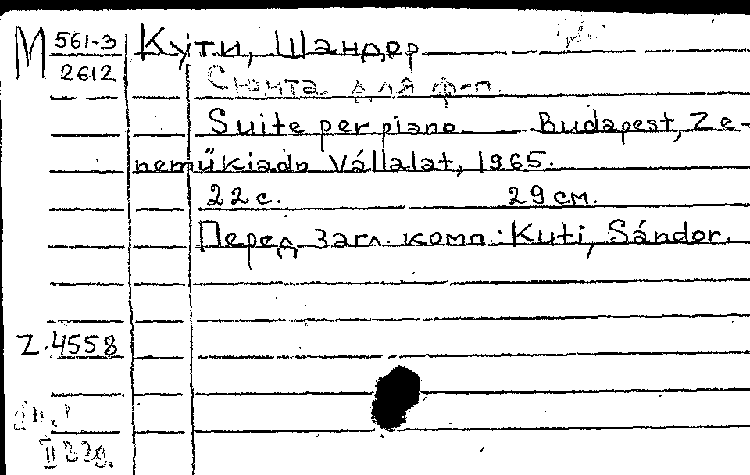 М 561-3 Кути, Шандор
2612
Сюита для ф-п.
Suite per piano. Budapest, Ze-
neműkiadó Vállalat, 1965.
22 с. 29 см.
Перед загл. комп.: Kuti, Sándor.
Z. 4558